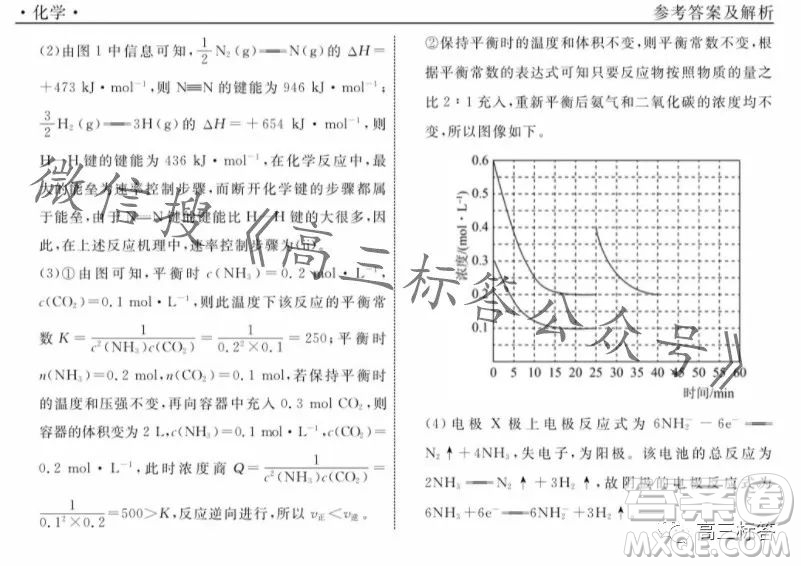 ·化学·
参考答案及解析
(2)由图1中信息可知,1/2 N₂(g)══N(g)的 ΔH=
+473 kJ·mol⁻¹,则 N≡N 的键能为 946 kJ·mol⁻¹;
3/2 H₂(g)══3H(g)的 ΔH=+654 kJ·mol⁻¹,则
H—H 键的键能为 436 kJ·mol⁻¹,在化学反应中,最
大的能垒为速率控制步骤,而断开化学键的步骤都属
于能垒,由于 N≡N 键的键能比 H—H 键的大很多,因
此,在上述反应机理中,速率控制步骤为(ⅱ)。
(3)①由图可知,平衡时 c(NH₃)=0.2 mol·L⁻¹,
c(CO₂)=0.1 mol·L⁻¹,则此温度下该反应的平衡常
数 K=1/(c²(NH₃)c(CO₂))=1/(0.2²×0.1)=250;平衡时
n(NH₃)=0.2 mol,n(CO₂)=0.1 mol,若保持平衡时
的温度和压强不变,再向容器中充入 0.3 mol CO₂,则
容器的体积变为 2 L,c(NH₃)=0.1 mol·L⁻¹,c(CO₂)=
0.2 mol·L⁻¹,此时浓度商 Q=1/(c²(NH₃)c(CO₂))=
1/(0.1²×0.2)=500>K,反应逆向进行,所以 v正<v逆。
②保持平衡时的温度和体积不变,则平衡常数不变,根
据平衡常数的表达式可知只要反应物按照物质的量之
比 2∶1 充入,重新平衡后氨气和二氧化碳的浓度均不
变,所以图像如下。
浓度/(mol·L⁻¹)
0.6
0.5
0.4
0.3
0.2
0.1
0 5 10 15 20 25 30 35 40 45 50 55 60
时间/min
(4)电极 X 极上电极反应式为 6NH₂⁻−6e⁻══
N₂↑+4NH₃,失电子,为阳极。该电池的总反应为
2NH₃══N₂↑+3H₂↑,故阴极的电极反应式为
6NH₃+6e⁻══6NH₂⁻+3H₂↑
微信搜《高三标答公众号》
答案圈
MXQE.COM
高三标答